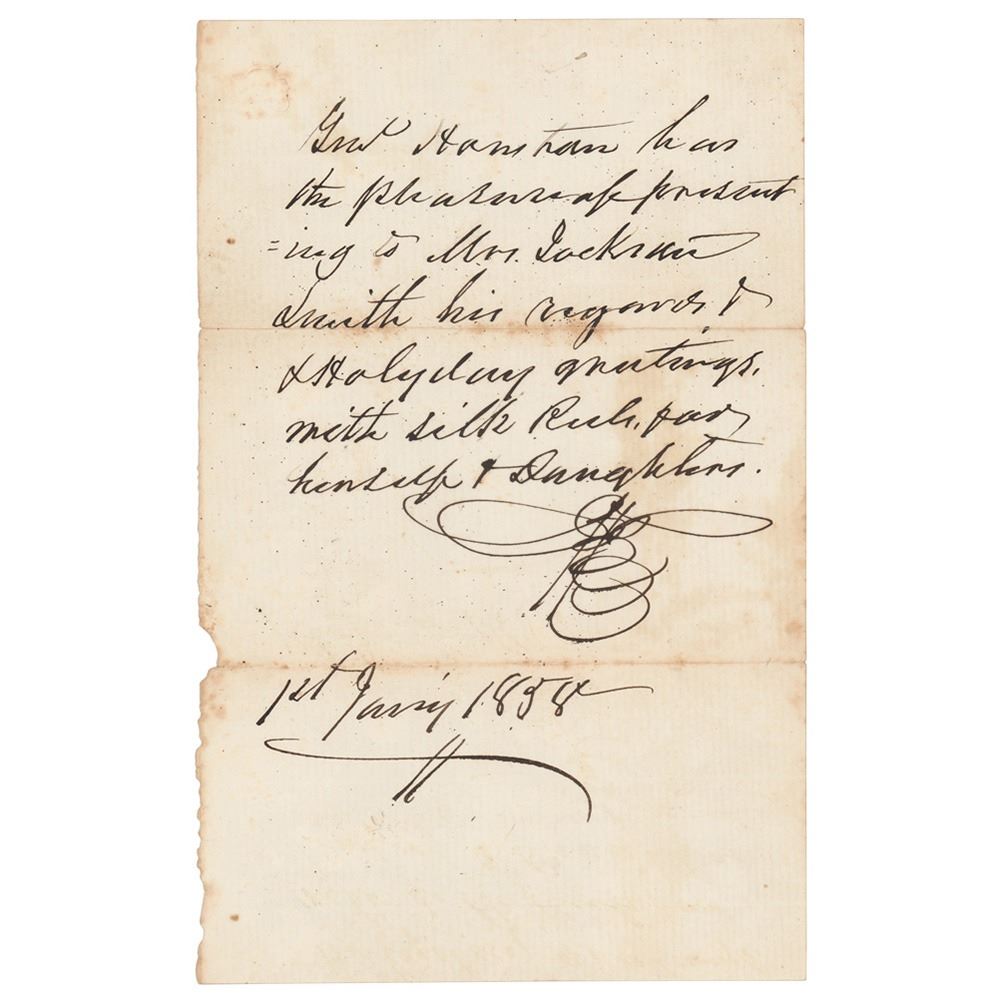 Genl Houston has
the pleasure of present
=ing to Mrs. Jackson
Smith his regards &
& Holyday greetings,
with silk for
herself & Daughters.
1st Jan'y 1858